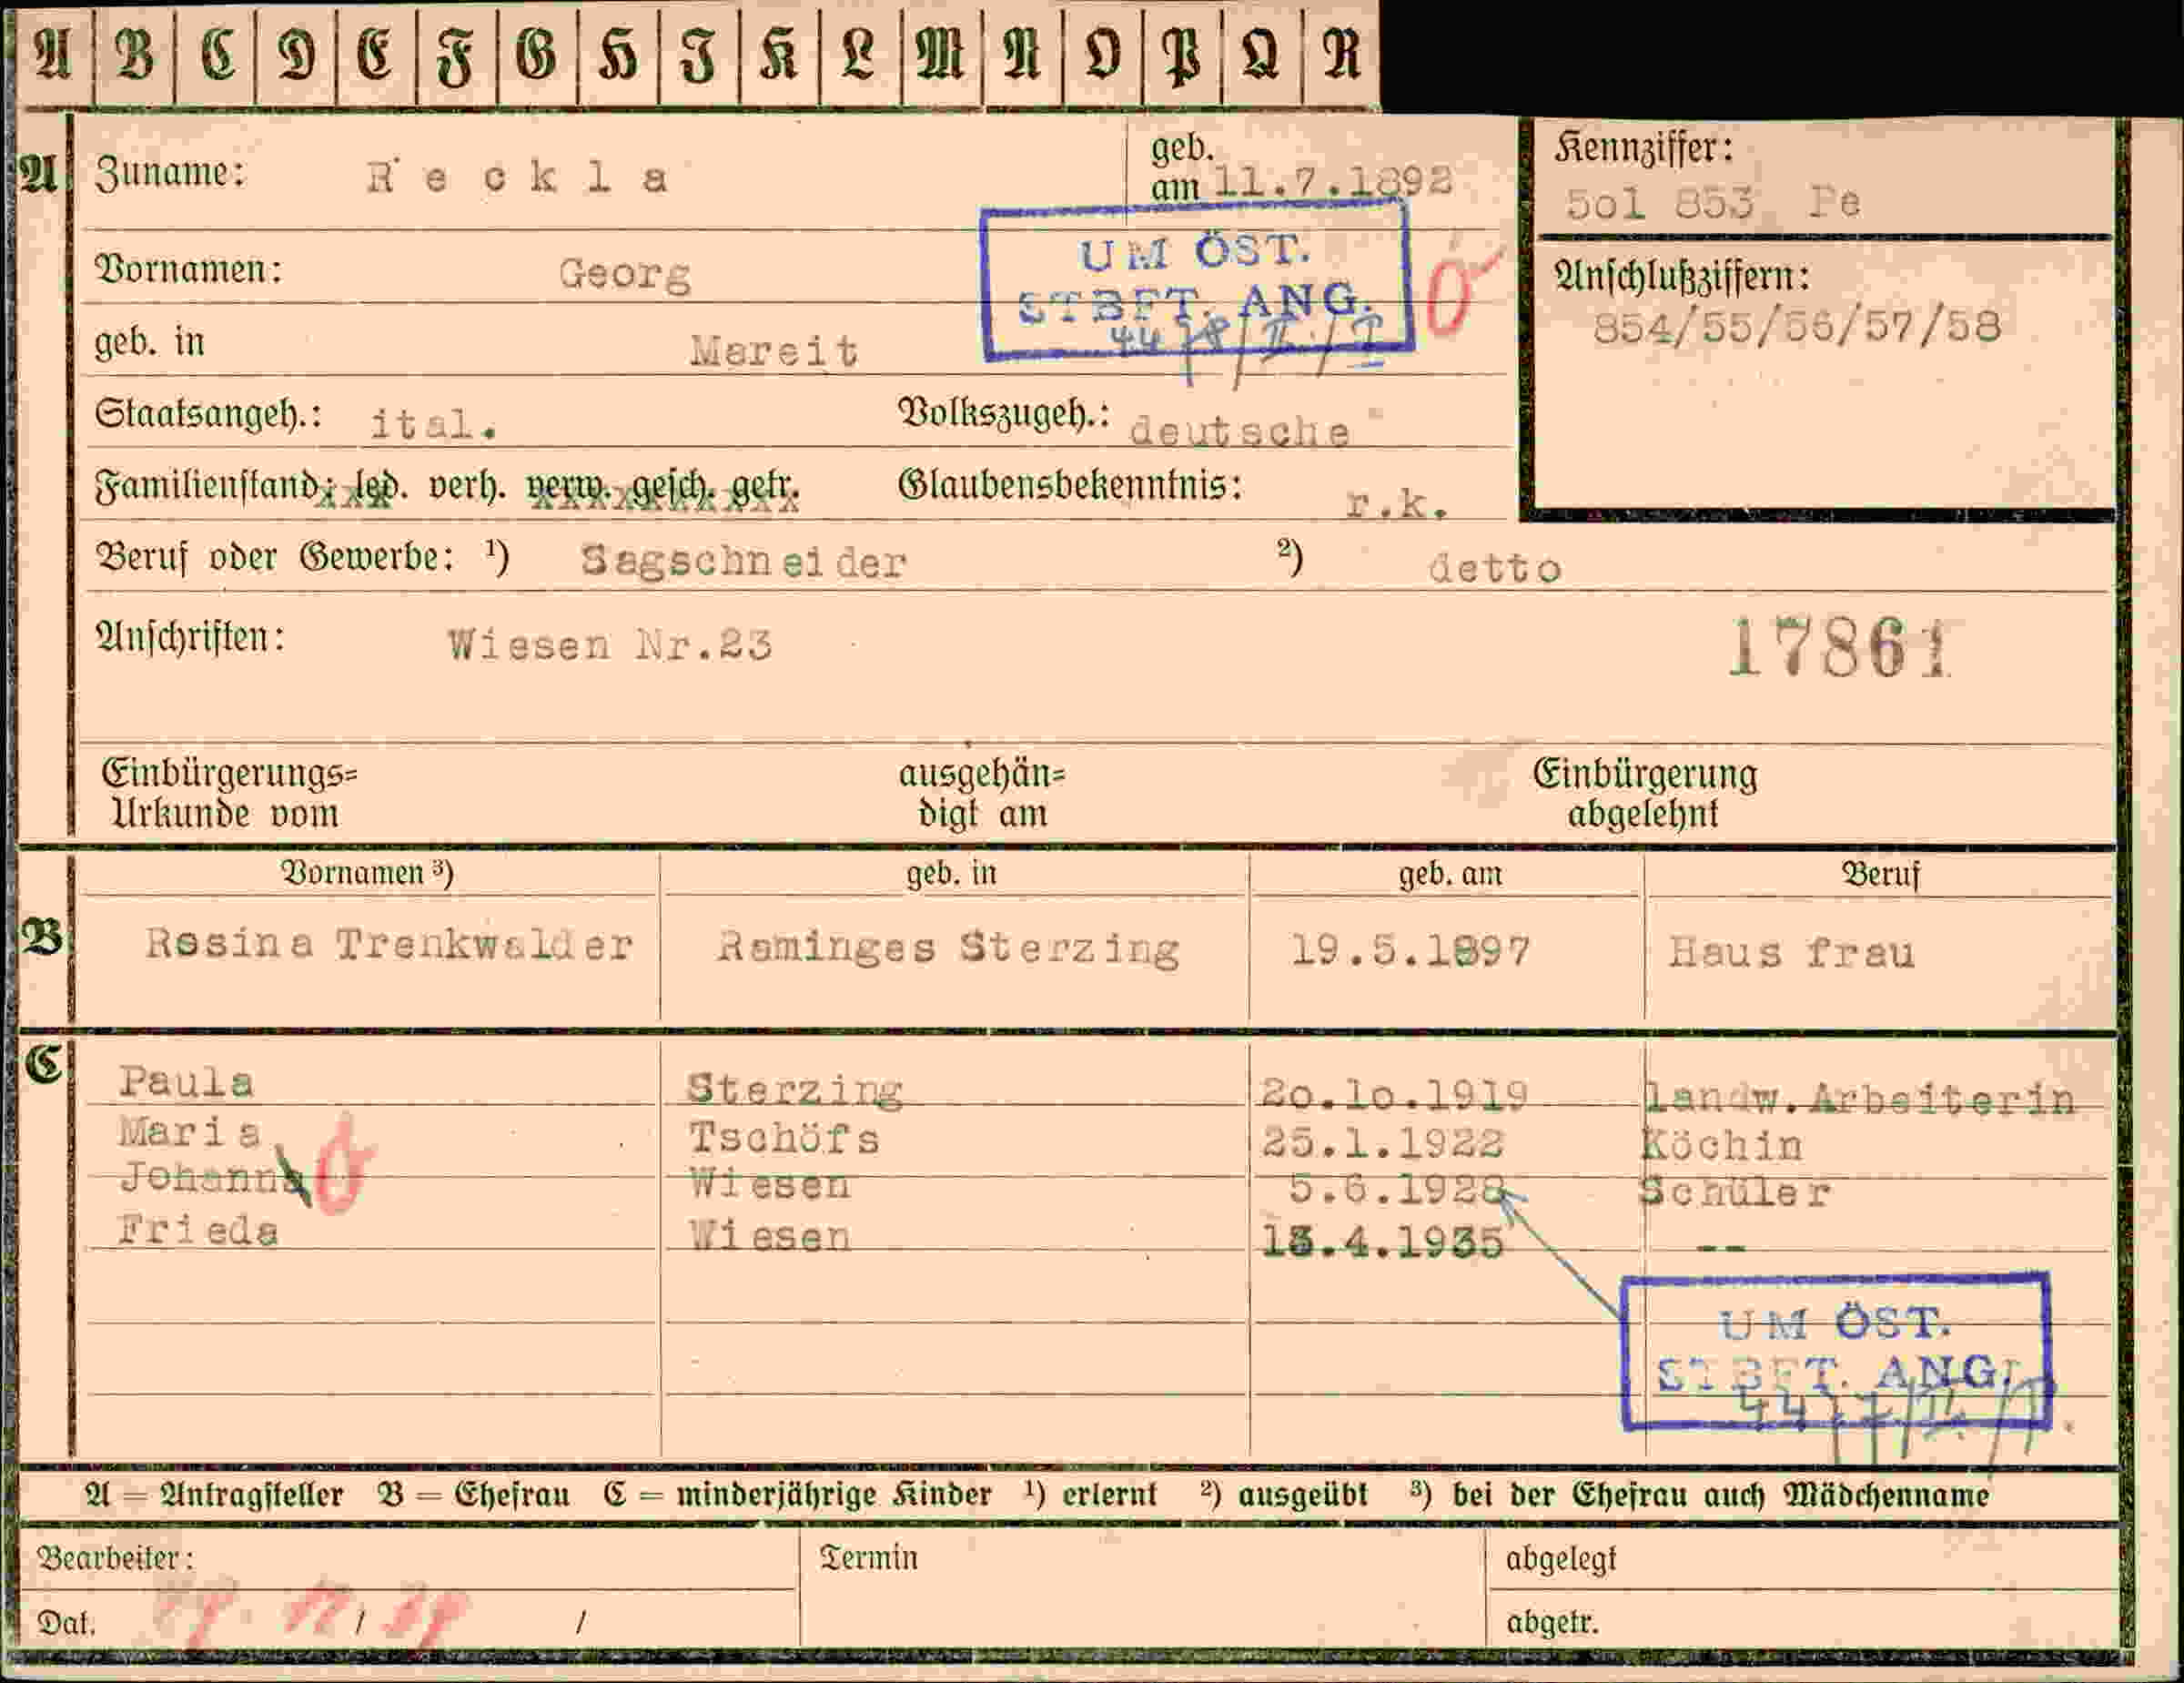 A B C D E F G H I K L M N O P Q R
A Zuname: Reckla geb. am 11.7.1892
Kennziffer:
5ol 853 Pe
UM ÖST.
STBFT. ANG.
Vornamen: Georg
Anschlußziffern:
854/55/56/57/58
geb. in Mareit
Staatsangeh.: ital. Volkszugeh.: deutsche
Familienstand: led. verh. verw. gesch. getr. Glaubensbekenntnis: r.k.
Beruf oder Gewerbe: ¹) Sagschneider ²) detto
Anschriften: Wiesen Nr.23
17861
Einbürgerungs= ausgehän= Einbürgerung
Urkunde vom digt am abgelehnt
Vornamen ³) geb. in geb. am Beruf
B Rosina Trenkwalder Raminges Sterzing 19.5.1897 Hausfrau
C Paula Sterzing 2o.1o.1919 landw. Arbeiterin
Maria Tschöfs 25.1.1922 Köchin
Johann Wiesen 5.6.1928 Schüler
Frieda Wiesen 13.4.1935 --
UM ÖST.
STBFT. ANG.
A = Antragsteller B = Ehefrau C = minderjährige Kinder ¹) erlernt ²) ausgeübt ³) bei der Ehefrau auch Mädchenname
Bearbeiter: Termin abgelegt
Dat. / / abgetr.